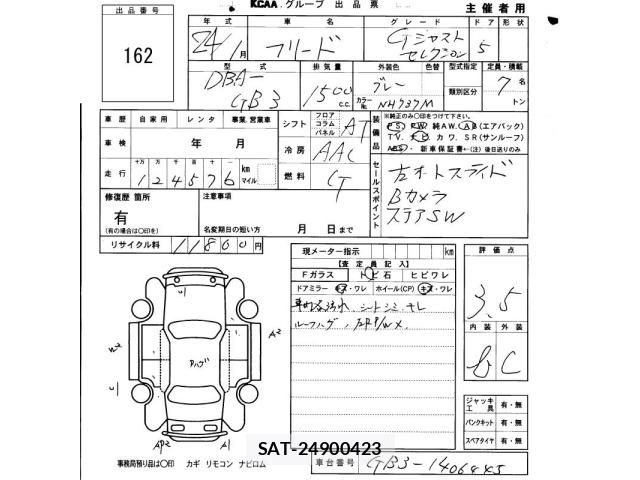 KCAA グループ 出品票
主催者用
出品番号
162
年式 車名 グレード ドア 形状
24/1月 フリード Gジャスト セレクション 5
型式 排気量 外装色 色替 型式指定 定員・積載
DBA-GB3 1500 c.c. グレー カラーNo. NH737M 類別区分 7名 トン
車歴 自家用 レンタ 事業、営業車
シフト フロア コラム パネル AT
装備品
※純正のみ〇印をつけて下さい。
P.S. P.W. 純A.W. A.B(エアバック)
T.V. ナビ カワ S.R(サンルーフ)
ABS・新車保証書←(注)後日送りのみ
車検 年 月
冷房 AAC
走行 十万 万 千 百 十 一
124576 km マイル
燃料
セールスポイント
左オートスライド
Bカメラ
ステアSW
修復歴 箇所
有
(有の場合は〇印を)
注意事項
名変期日の短い方 月 日まで
リサイクル料 11800円
現メーター指示 km
評価点
3.5
【査定員記入】
Fガラス トビ石 ヒビワレ
ドアミラー キズ・ワレ ホイール(CP) キズ・ワレ
シートシミ・キレ
内装 外装
C
Pハゲ
A2
A1
ジャッキ 工具 有・無
パンクキット 有・無
スペアタイヤ 有・無
SAT-24900423
事務局預り品は〇印 カギ リモコン ナビロム
車台番号